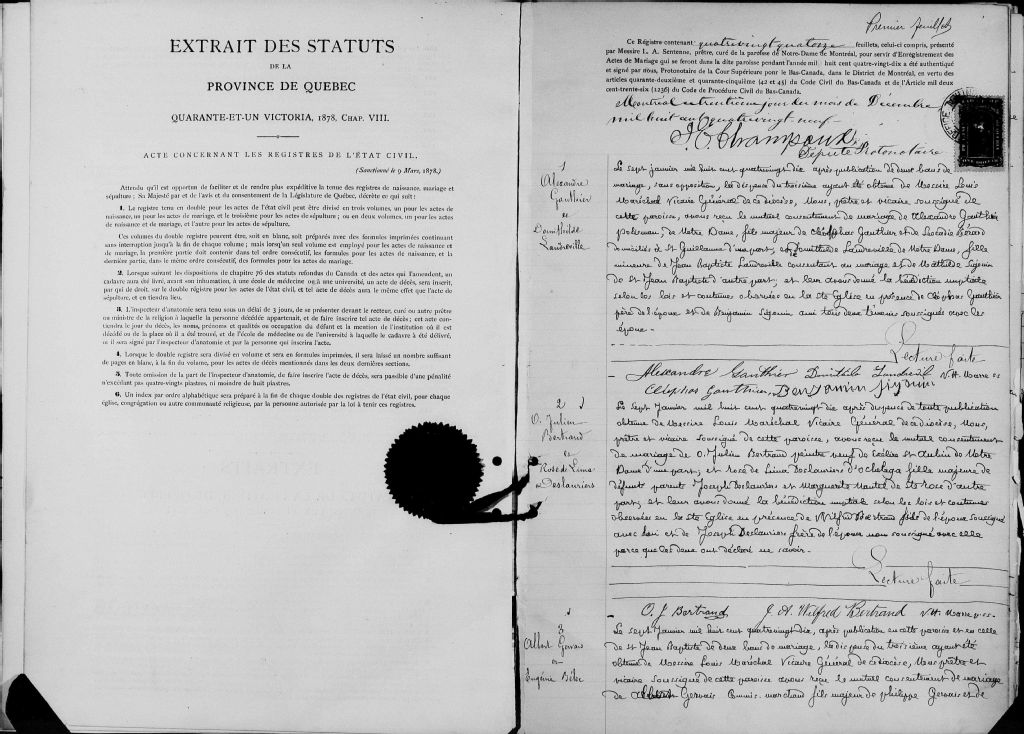 EXTRAIT DES STATUTS
DE LA
PROVINCE DE QUEBEC
QUARANTE-ET-UN VICTORIA, 1878, CHAP. VIII.
ACTE CONCERNANT LES REGISTRES DE L'ÉTAT CIVIL.
(Sanctionné le 9 Mars, 1878.)
Attendu qu'il est opportun de faciliter et de rendre plus expéditive la tenue des registres de naissance, mariage et
sépulture ; Sa Majesté par et de l'avis et du consentement de la Législature de Québec, décrète ce qui suit :
1. Le registre tenu en double pour les actes de l'état civil peut être divisé en trois volumes, un pour les actes de
naissance, un pour les actes de mariage, et le troisième pour les actes de sépulture ; ou en deux volumes, un pour les actes
de naissance et de mariage, et l'autre pour les actes de sépulture.
Ces volumes du double registre peuvent être, soit en blanc, soit préparés avec des formules imprimées continuant
sans interruption jusqu'à la fin de chaque volume ; mais lorsqu'un seul volume est employé pour les actes de naissance et
de mariage, la première partie doit contenir dans tel ordre consécutif, les formules pour les actes de naissance, et la
dernière partie, dans le même ordre consécutif, des formules pour les actes de mariage.
2. Lorsque suivant les dispositions de chapitre 76 des statuts refondus du Canada et des actes qui l'amendent, un
cadavre aura été livré, avant son inhumation, à une école de médecine ou à une université, un acte de décès, sera inscrit,
par qui de droit, sur le double registre pour les actes de l'état civil, et tel acte de décès aura le même effet que l'acte de
sépulture, et en tiendra lieu.
3. L'inspecteur d'anatomie sera tenu sous un délai de 3 jours, de se présenter devant le recteur, curé ou autre prêtre
ou ministre de la religion à laquelle la personne décédée appartenait, et de faire inscrire tel acte de décès ; et cet acte con-
tiendra le jour du décès, les noms, prénoms et qualités ou occupation du défunt et la mention de l'institution où il est
décédé ou de la place où il a été trouvé, et de l'école de médecine ou de l'université à laquelle le cadavre a été délivré,
et il sera signé par l'inspecteur d'anatomie et par la personne qui inscrira l'acte.
4. Lorsque le double registre sera divisé en volume et sera en formules imprimées, il sera laissé un nombre suffisant
de pages en blanc, à la fin du volume, pour les actes de décès mentionnés dans les deux dernières sections.
5. Toute omission de la part de l'inspecteur d'anatomie, de faire inscrire l'acte de décès, sera passible d'une pénalité
n'excédant pas quatre-vingts piastres, ni moindre de huit piastres.
6. Un index par ordre alphabétique sera préparé à la fin de chaque double des registres de l'état civil, pour chaque
église, congrégation ou autre communauté religieuse, par la personne autorisée par la loi à tenir ces registres.
Premier feuillet
Ce Régistre contenant quatrevingt quatorze feuillets, celui-ci compris, présenté
par Messire L. A. Sentenne, prêtre, curé de la paroisse de Notre-Dame de Montréal, pour servir d'Enregistrement des
Actes de Mariage qui se feront dans la dite paroisse pendant l'année mil huit cent quatre-vingt-dix a été authentiqué
et signé par nous, Protonotaire de la Cour Supérieure pour le Bas-Canada, dans le District de Montréal, en vertu des
articles quarante-deuxième et quarante-cinquième (42 et 45) du Code Civil du Bas-Canada et de l'Article mil deux
cent-trente-six (1236) du Code de Procédure Civil du Bas-Canada.
Montréal ce trentième jour du mois de Décembre
mil huit cent quatrevingt neuf
Député Protonotaire
1
Alexandre
Gauthier
et
Domithilde
Landreville
Le sept janvier mil huit cent quatrevingt dix après publication de deux bans de
mariage, sans opposition, la dispense du troisième ayant été obtenue de Messire Louis
Maréchal Vicaire Général de ce diocèse, Nous, prêtre et vicaire soussigné de
cette paroisse, avons reçu le mutuel consentement de mariage de Alexandre Gauthier
policeman, de Notre Dame, fils majeur de Cléophas Gauthier et de Léocadie
domiciliés de St Guillaume d'une part, et de Domithilde Landreville de Notre Dame, fille
mineure de Jean Baptiste Landreville consentant au mariage et de Mathilde Sigouin
de St Jean Baptiste d'autre part, et leur avons donné la bénédiction nuptiale
selon les lois et coutumes observées en la Ste Eglise en présence de Cléophas Gauthier
père de l'époux et de Benjamin Sigouin ami tous deux témoins soussignés avec les
époux.
Lecture faite
Alexandre Gauthier Domitile Landreville
Cléophas Gauthier Benjamin Sigouin
2
O. Julien
Bertrand
et
Rose de Lima
Deslauriers
Le sept Janvier mil huit cent quatrevingt dix après dispense de toute publication
obtenue de Messire Louis Maréchal Vicaire Général de ce diocèse, Nous,
prêtre et vicaire soussigné de cette paroisse, avons reçu le mutuel consentement
de mariage de O. Julien Bertrand peintre veuf de Exélire St Aubin de Notre
Dame d'une part, et rose de Lima Deslauriers d'Ochelaga fille majeure de
défunt parents Joseph Deslauriers et Marguerite de Ste Rose d'autre
part, et leur avons donné la bénédiction nuptiale selon les lois et coutumes
observées en la Ste Eglise en présence de Wilfrid Bertrand fils de l'époux soussigné
avec lui et de Joseph Deslauriers frère de l'épouse non soussigné avec elle
parce que les deux ont déclaré ne savoir.
Lecture faite
O. J Bertrand J. A. Wilfred Bertrand
3
Albert Gervais
et
Eugénie Bélec
Le sept Janvier mil huit cent quatrevingt dix, après publication en cette paroisse et en celle
de St Jean Baptiste de deux bans de mariage, la dispense du troisième ayant été
obtenue de Messire Louis Maréchal Vicaire Général de ce diocèse, Nous prêtre et
vicaire soussigné de cette paroisse avons reçu le mutuel consentement de mariage
de Albert Gervais Commis marchand fils majeur de philippe Gervais et de